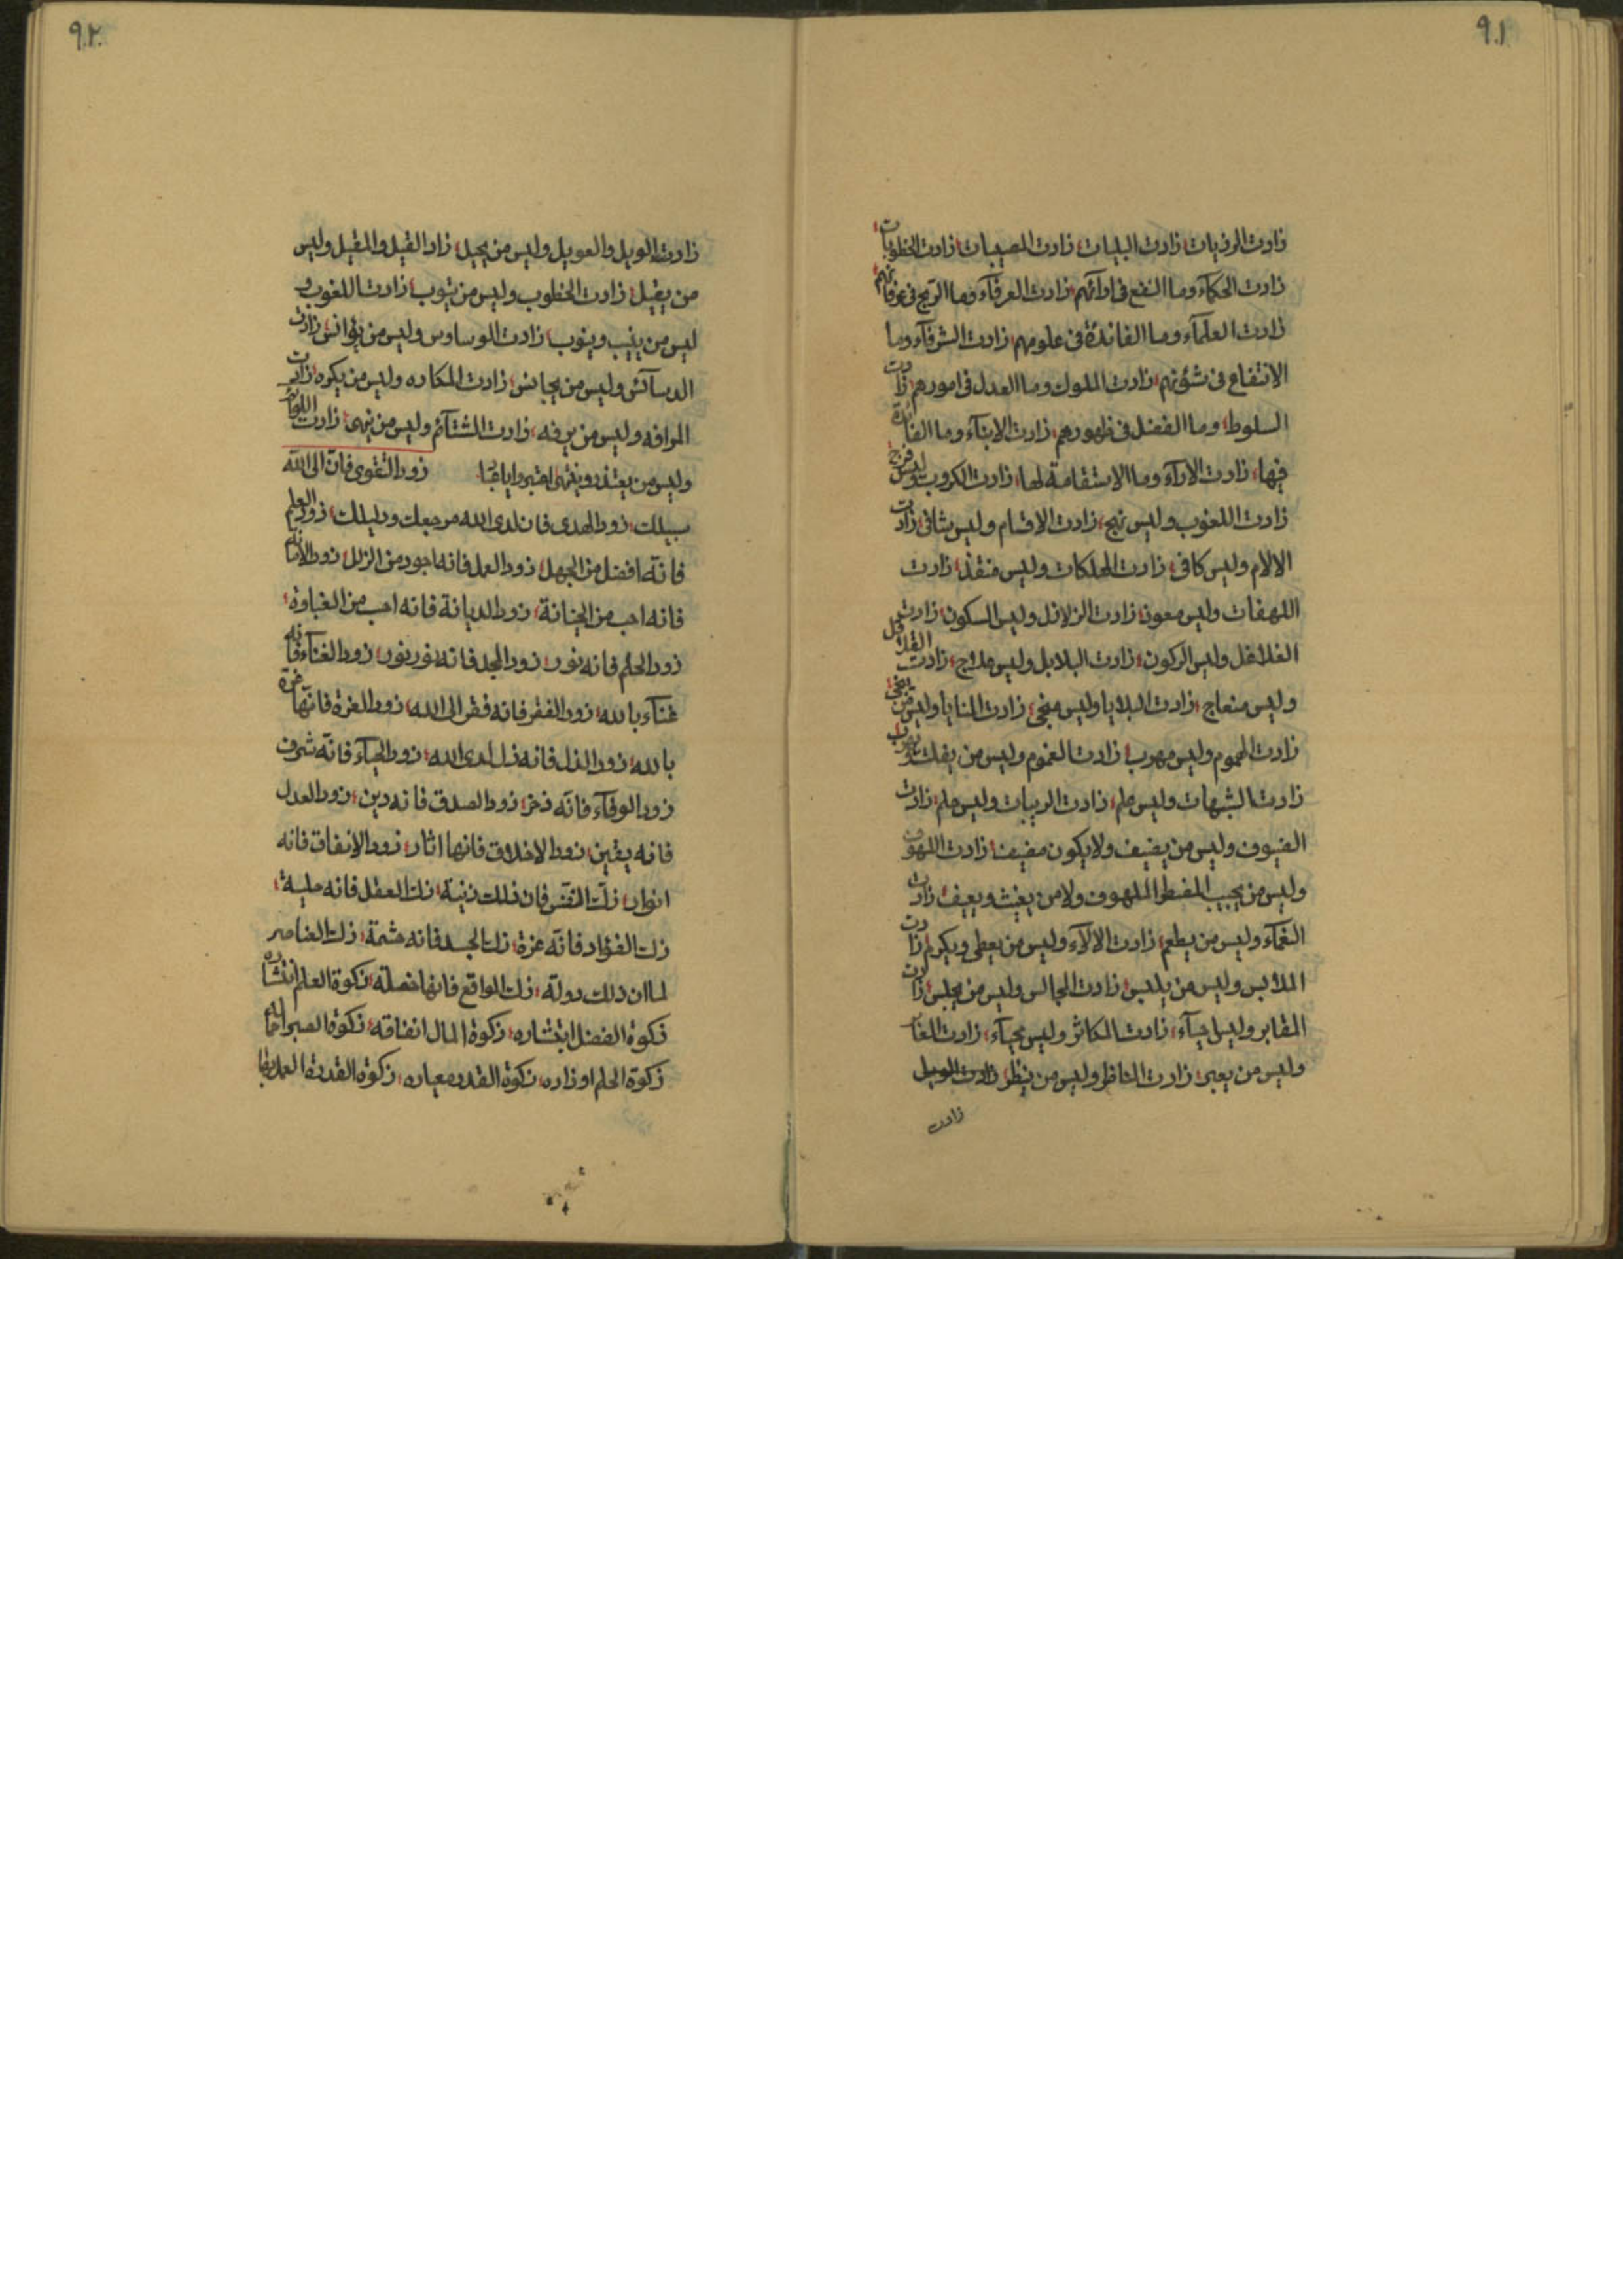 ٩١
زادت الرزيات زادت البليات زادت المصيبات زادت الخطوبات
زادت الحكمآء وما النفع فى ارآئهم زادت العرفآء وما الربح فى عرفانهم
زادت العلمآء وما الفائدة فى علومهم زادت الشرفآء وما
الانتفاع فى شؤنهم زادت الملوك وما العدل فى امورهم زادت
السلوط وما الفضل فى ظهورهم زادت الابنآء وما الفائدة
فيها زادت الارآء وما الاستقامة لها زادت الكروب وليس فرج
زادت اللغوب وليس نهج زادت الاقسام وليس شافى زادت
الالام وليس كافى زادت الهلكات وليس منقذ زادت
اللهفات وليس معون زادت الزلازل وليس السكون زادت
الغلاغل وليس الركون زادت البلابل وليس علاج زادت القلاقل
وليس منعاج زادت البلايا وليس منجى زادت المنايا وليس من
زادت الهموم وليس مهرب زادت الغموم وليس من يفلت
زادت الشبهات وليس حلم زادت الريبات وليس علم زادت
الضيوف وليس من يضيف ولا يكون مضيف زادت اللهوف
وليس من يجيب المضطر الملهوف ولا من يغيث ويعيف زادت
النعمآء وليس من يطعم زادت الالآء وليس من يعطى ويكرم زادت
الملابس وليس من يلبس زادت المجالس وليس من يجلس زادت
المقابر وليس حيآء زادت المكاثر وليس محيآء زادت
وليس من يعبر زادت المناظر وليس من ينظر زادت الويل
زادت
٩٢
زادت الويل والعويل وليس من يحيل زاد القيل والمقيل وليس
من يقيل زادت الخطوب وليس من يتوب زادت اللغوب و
ليس من ينيب وينوب زادت الوساوس وليس من يؤانس زادت
الدسآئس وليس من يجانس زادت المكاره وليس من يكره زادت
المرافه وليس من يرفه زادت الشتآئم وليس من ينهى زادت اللوائم
وليس من يعتذر وينتهى اعتبروا يا احبا زود التقوى فان الى الله
سبيلك زود الهدى فان لدى الله مرجعك ودليلك زود العلم
فانه افضل من الجهل زود العمل فانه اجود من الزلل زود الامانة
فانه احب من الخيانة زود الديانة فانه احب من الغباوة
زود الحلم فانه نور زود المجد فانه نور بنور زود الغنآء فانه
غنآء بالله زود الفقر فانه فقر الى الله زود العزة فانها عزة
بالله زود الذل فانه ذل لدى الله زود الحيآء فانه شرف
زود الوفآء فانه ذخر زود الصدق فانه دين زود العدل
فانه يقين زود الاخلاق فانها اثار زود الانفاق فانه
انوار زك النفس فان ذلك زينة زك العقل فانه حلية
زك الفؤاد فانه عزة زك الجسد فانه حشمة زك العناصر
لما ان ذلك دولة زك الواقع فانها خصلة زكوة العلم انتشاره
زكوة الفضل ابتشاره زكوة المال انفاقه زكوة الصبر
زكوة الحلم اوزاره زكوة القدر معياره زكوة القدرة العدل